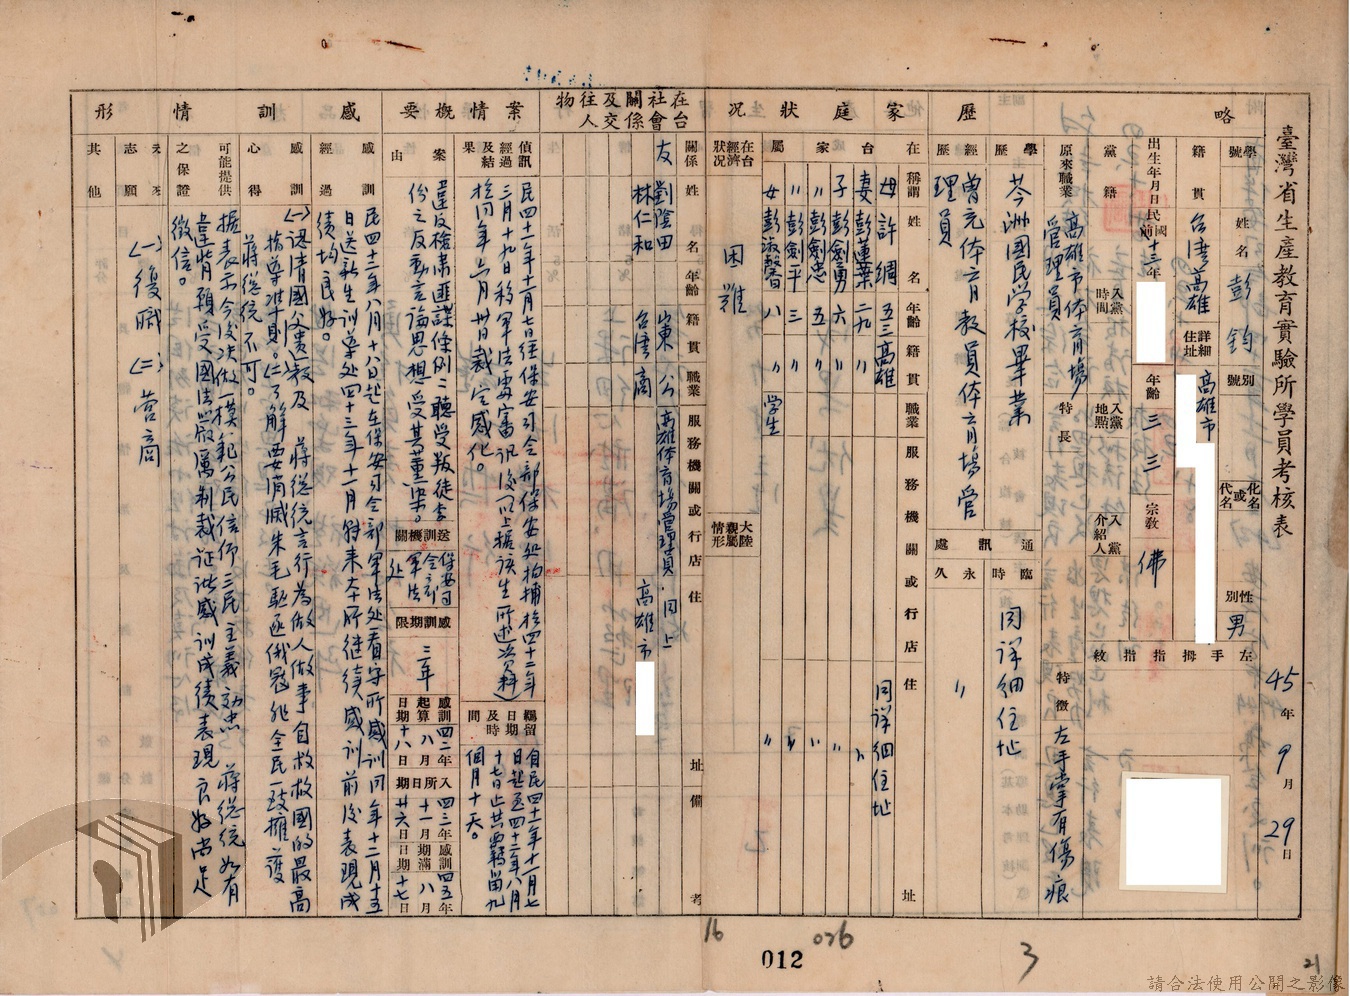 臺灣省生產教育實驗所學員考核表
45年9月29日
略歷
學號
姓名 彭鈞
別號
化名或代名
性別 男
籍貫 台灣高雄
詳細住址 高雄市
左手拇指指紋
出生年月日 民國前 十三年
年齡 三三
宗教 佛
黨籍
入黨時間
入黨地點
入黨介紹人
原來職業 高雄市体育場管理員
特長
特徵 左手掌有傷痕
學歷 苓洲國民學校畢業
經歷 曾充体育教員体育場管理員
通訊處
臨時 同詳細住址
永久 〃
家庭狀況
在台家屬
稱謂 姓名 年齡 籍貫 職業 服務機關或行店 住址
母 許綢 五三 高雄 同詳細住址
妻 彭蓮葉 二九 〃 〃
子 彭劍勇 六 〃 〃
〃 彭劍忠 五 〃 〃
〃 彭劍平 三 〃 〃
女 彭淑馨 八 〃 學生 〃
在台經濟狀況 困難
大陸親屬情形
在台社會關係及交往人物
關係 姓名 年齡 籍貫 職業 服務機關或行店 住址 備考
友 劉蔭田 山東 公 高雄体育場管理員 同上
林仁和 台灣 商 高雄市
案情概要
偵訊經過及結果 民四十一年十一月七日經保安司令部保安処拘捕於四十二年三月十九日移軍法處審訊後(以上據該生所述次料)於同年六月卅日裁定感化。
羈留日期及時間 自民四十一年十一月七日起至四十二年八月十七日止共羈留九個月十天。
案由 違反檢肅匪諜條例:聽受叛徒李份之反動言論思想受其薰染。
送訓機關 保安司令部軍法処
感訓期限 三年
感訓起算日期 四二年八月十八日
入所日期 四三年十一月廿六日
感訓期滿日期 四五年八月十七日
感訓情形
感訓經過 民四十二年八月十八日起在保安司令部軍法処看守所感訓同年十二月十五日送新生訓導處四十三年十一月轉來本所继續感訓前後表現成績均良好。
感訓心得 (一)認清國父遺教及 蔣總統言行為做人做事自救救國的最高指導準則。(二)了解要消滅朱毛駆逐俄寇非全民一致擁護 蔣總統不可。
可能提供之保證 據表示今後決做一模範公民信仰三民主義効忠 蔣總統如有違背願受國法嚴厲制裁証諸感訓成績表現良好尚足徵信。
志願 (一)復職 (二)營商
其他
16
026
012
3
21
請合法使用公開之影像